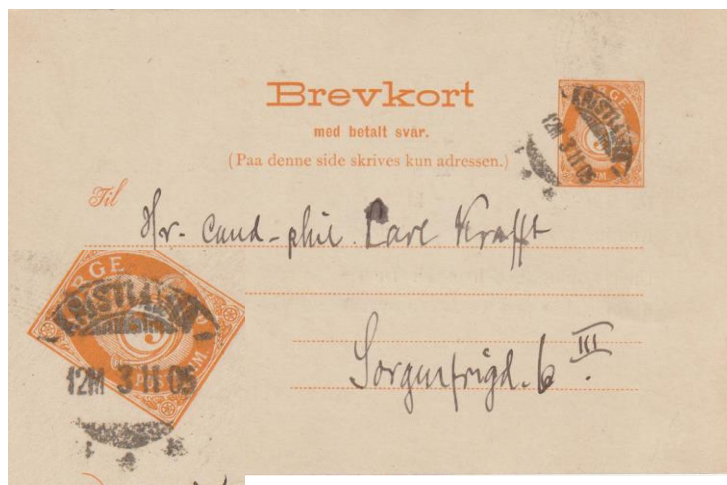 Brevkort
med betalt svar.
(Paa denne side skrives kun adressen.)
KRISTIANIA
12M 3 11 05
Til
Hr. cand-phil. Carl Krafft
Sorgenfrigd. 6 III
RGE
KRISTIANIA
12M 3 11 05